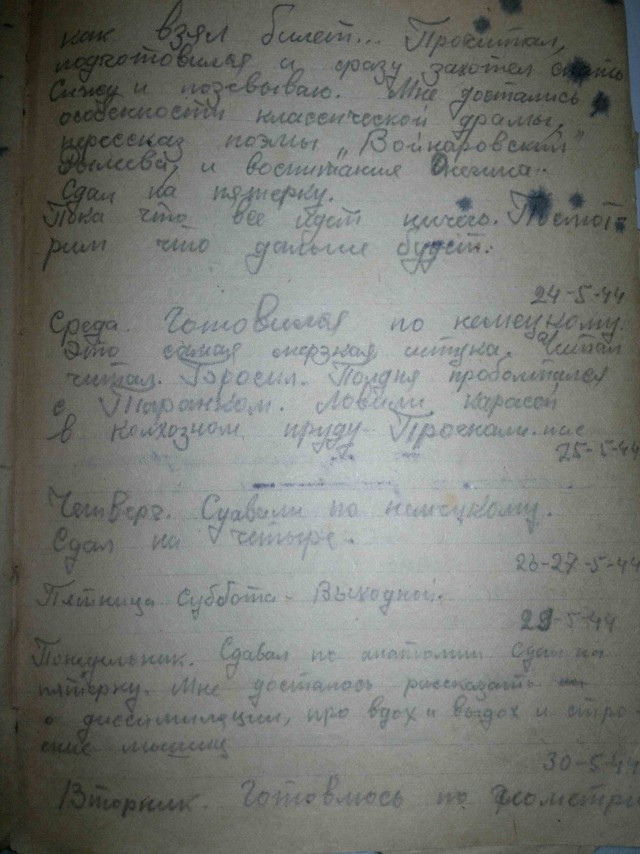 как взял билет... Прочитал,
подготовился и сразу захотел спать
Сижу и позевываю. Мне достались
особенности классической драмы,
пересказ поэмы „Войнаровский"
Рылеева, и воспитания Онегина.
Сдал на пятерку.
Пока что все идет ничего. Посмот-
рим что дальше будет.
24-5-44
Среда. Готовился по немецкому.
Это самая мерзкая штука. Читал
читал. Бросил. Полдня проболтался
с Таранком. Ловили карасей
в колхозном пруду. Прогнали нас
25-5-44
Четверг. Сдавали по немецкому.
Сдал на четыре.
26-27-5-44
Пятница Суббота - Выходной.
29-5-44
Понедельник. Сдавал по анатомии Сдал на
пятерку. Мне досталось рассказать
о диссимиляции, про вдох и выдох и строе-
ние мышц
30-5-44
Вторник. Готовлюсь по геометри